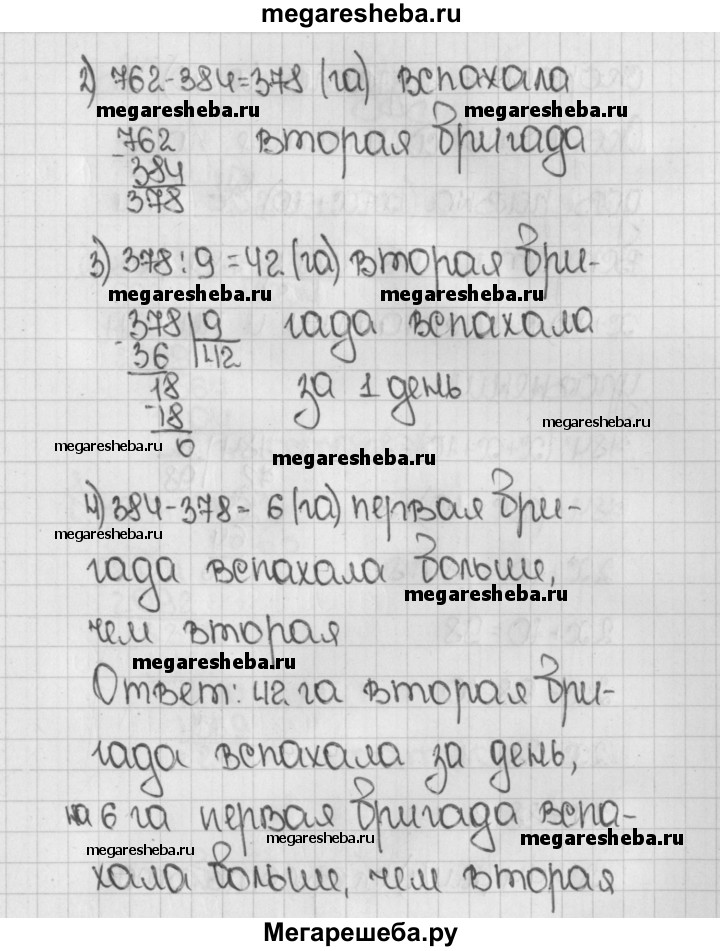 megaresheba.ru
2) 762-384=378 (га) вспахала
megaresheba.ru megaresheba.ru
-762 вторая бригада
384
378
3) 378:9=42 (га) вторая бри-
megaresheba.ru megaresheba.ru
378|9 гада вспахала
-36 |42
18 за 1 день
-18 megaresheba.ru
megaresheba.ru 0 megaresheba.ru
4) 384-378= 6 (га) первая бри-
megaresheba.ru
гада вспахала больше,
megaresheba.ru
чем вторая
megaresheba.ru
Ответ: 42 га вторая бри-
гада вспахала за день,
на 6 га первая бригада вспа-
megaresheba.ru megaresheba.ru megaresheba.ru
хала больше, чем вторая
Мегарешеба.ру